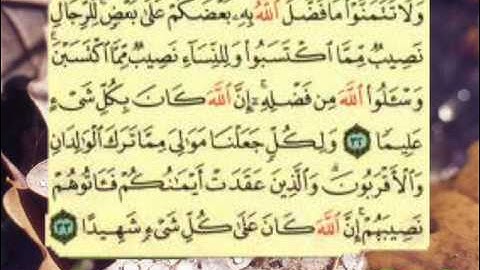 وَلَا تَتَمَنَّوْا۟ مَا فَضَّلَ ٱللَّهُ بِهِۦ بَعْضَكُمْ عَلَىٰ بَعْضٍۢ ۚ لِّلرِّجَالِ
نَصِيبٌۭ مِّمَّا ٱكْتَسَبُوا۟ ۖ وَلِلنِّسَآءِ نَصِيبٌۭ مِّمَّا ٱكْتَسَبْنَ ۚ
وَسْـَٔلُوا۟ ٱللَّهَ مِن فَضْلِهِۦٓ ۗ إِنَّ ٱللَّهَ كَانَ بِكُلِّ شَىْءٍ
عَلِيمًۭا ٣٢ وَلِكُلٍّۢ جَعَلْنَا مَوَٰلِىَ مِمَّا تَرَكَ ٱلْوَٰلِدَانِ
وَٱلْأَقْرَبُونَ ۚ وَٱلَّذِينَ عَقَدَتْ أَيْمَٰنُكُمْ فَـَٔاتُوهُمْ
نَصِيبَهُمْ ۚ إِنَّ ٱللَّهَ كَانَ عَلَىٰ كُلِّ شَىْءٍۢ شَهِيدًا ٣٣